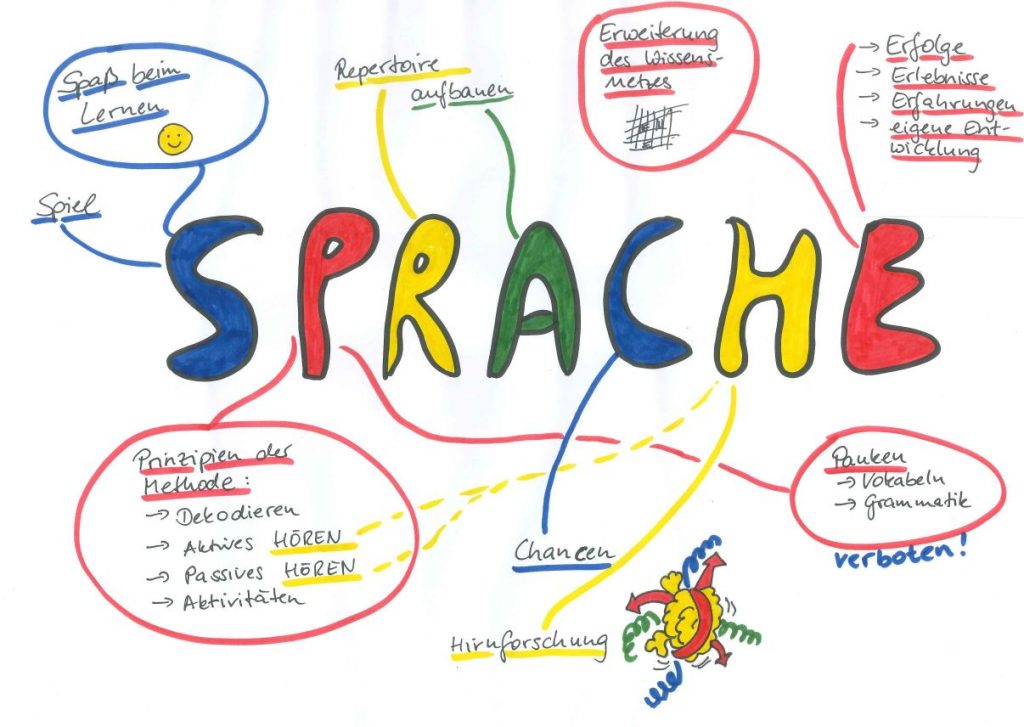 Spaß beim
Lernen
Spiel
Repertoire
aufbauen
Erweiterung
des Wissens-
netzes
→ Erfolge
→ Erlebnisse
→ Erfahrungen
→ eigene Ent-
wicklung
SPRACHE
Prinzipien der
Methode:
→ Dekodieren
→ Aktives HÖREN
→ Passives HÖREN
→ Aktivitäten
Chancen
Hirnforschung
Pauken
→ Vokabeln
→ Grammatik
verboten!